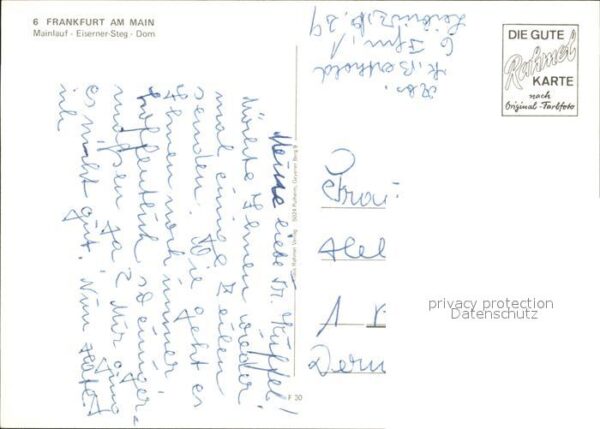 6 FRANKFURT AM MAIN
Mainlauf - Eiserner-Steg - Dom
Meine liebe Fr. Küffel!
Möchte Ihnen wieder
mal einige Zeilen
senden. Wie geht es
Ihnen noch immer
hoffentlich so einiger-
maßen ja? Mir ging
es nicht gut. Nun
ich
Rahmel-Verlag 5024 Pulheim,
F 30
Abs.
K. Berthold
6 Ffm. 1
39
DIE GUTE
Rahmel
KARTE
nach
Original-Farbfoto
Frau
Hel
1
privacy protection
Datenschutz